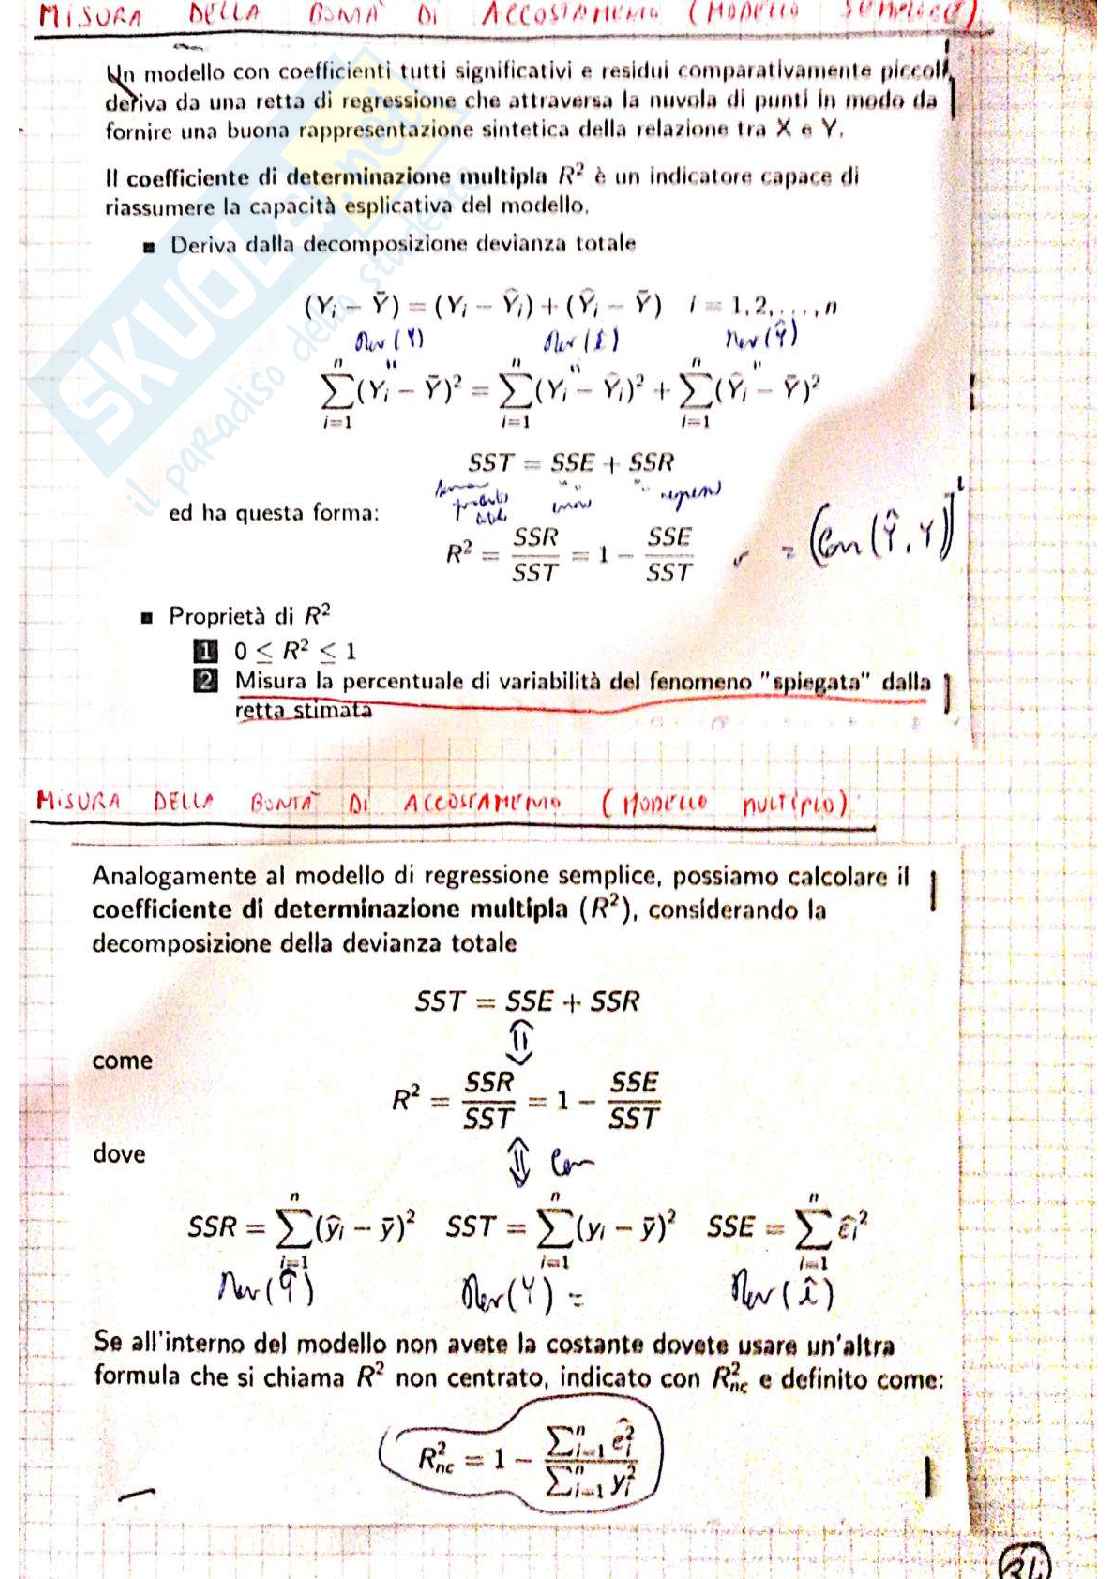 MISURA DELLA BONTÀ DI ACCOSTAMENTO (MODELLO SEMPLICE)
Un modello con coefficienti tutti significativi e residui comparativamente piccoli
deriva da una retta di regressione che attraversa la nuvola di punti in modo da
fornire una buona rappresentazione sintetica della relazione tra X e Y.
Il coefficiente di determinazione multipla R² è un indicatore capace di
riassumere la capacità esplicativa del modello.
■ Deriva dalla decomposizione devianza totale
(Yᵢ − Ȳ) = (Yᵢ − Ŷᵢ) + (Ŷᵢ − Ȳ) i = 1, 2, . . . , n
Dev(Y) Dev(ε̂) Dev(Ŷ)
∑ⁿᵢ₌₁(Yᵢ − Ȳ)² = ∑ⁿᵢ₌₁(Yᵢ − Ŷᵢ)² + ∑ⁿᵢ₌₁(Ŷᵢ − Ȳ)²
SST = SSE + SSR
ed ha questa forma:
R² = SSR/SST = 1 − SSE/SST = (Corr(Ŷ, Y))²
■ Proprietà di R²
1 0 ≤ R² ≤ 1
2 Misura la percentuale di variabilità del fenomeno "spiegata" dalla
retta stimata
MISURA DELLA BONTÀ DI ACCOSTAMENTO (MODELLO MULTIPLO)
Analogamente al modello di regressione semplice, possiamo calcolare il
coefficiente di determinazione multipla (R²), considerando la
decomposizione della devianza totale
SST = SSE + SSR
come
R² = SSR/SST = 1 − SSE/SST
dove
SSR = ∑ⁿᵢ₌₁(ŷᵢ − ȳ)² SST = ∑ⁿᵢ₌₁(yᵢ − ȳ)² SSE = ∑ⁿᵢ₌₁ ε̂ᵢ²
Dev(Ŷ) Dev(Y) = Dev(ε̂)
Se all'interno del modello non avete la costante dovete usare un'altra
formula che si chiama R² non centrato, indicato con R²nc e definito come:
R²nc = 1 − ∑ⁿᵢ₌₁ êᵢ² / ∑ⁿᵢ₌₁ yᵢ²
34
SKUOLA.net
il paradiso dello studente